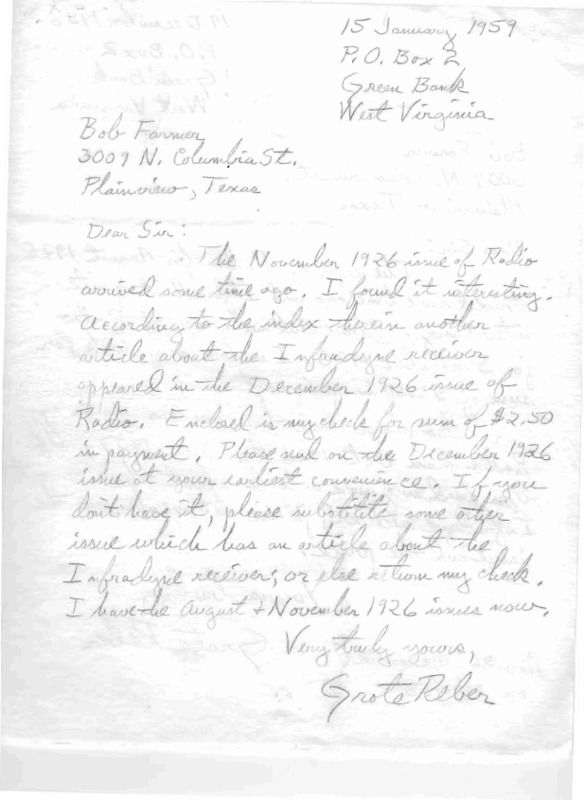 15 January 1959
P.O. Box 2
Green Bank
West Virginia
Bob Farmer
3009 N. Columbia St.
Plainview, Texas
Dear Sir:
The November 1926 issue of Radio
arrived some time ago. I found it interesting.
According to the index therein another
article about the Infradyne receiver
appeared in the December 1926 issue of
Radio. Enclosed is my check for sum of $2.50
in payment. Please send on the December 1926
issue at your earliest convenience. If you
don't have it, please substitute some other
issue which has an article about the
Infradyne receiver; or else return my check.
I have the August & November 1926 issues now.
Very truly yours,
Grote Reber